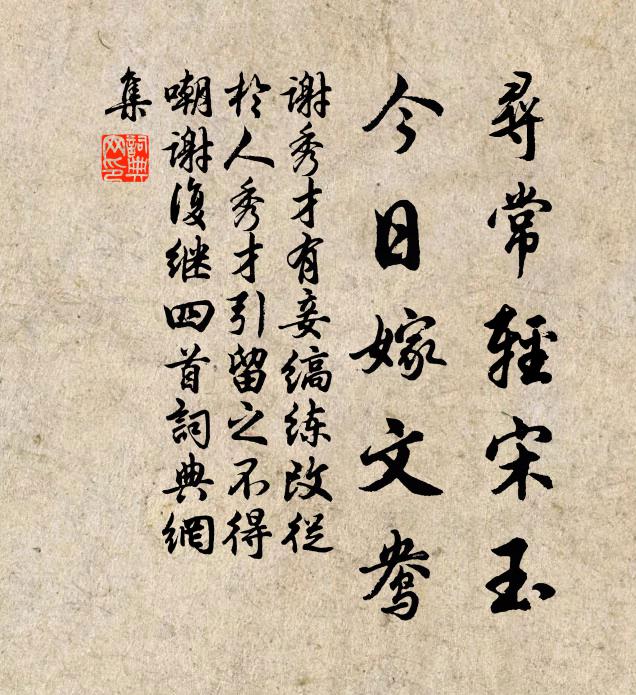 尋常輕宋玉
今日嫁文鴦
謝秀才有妾縞练改從
於人秀才引留之不得
嘲謝復继四首詞典網
集
詞典
网印